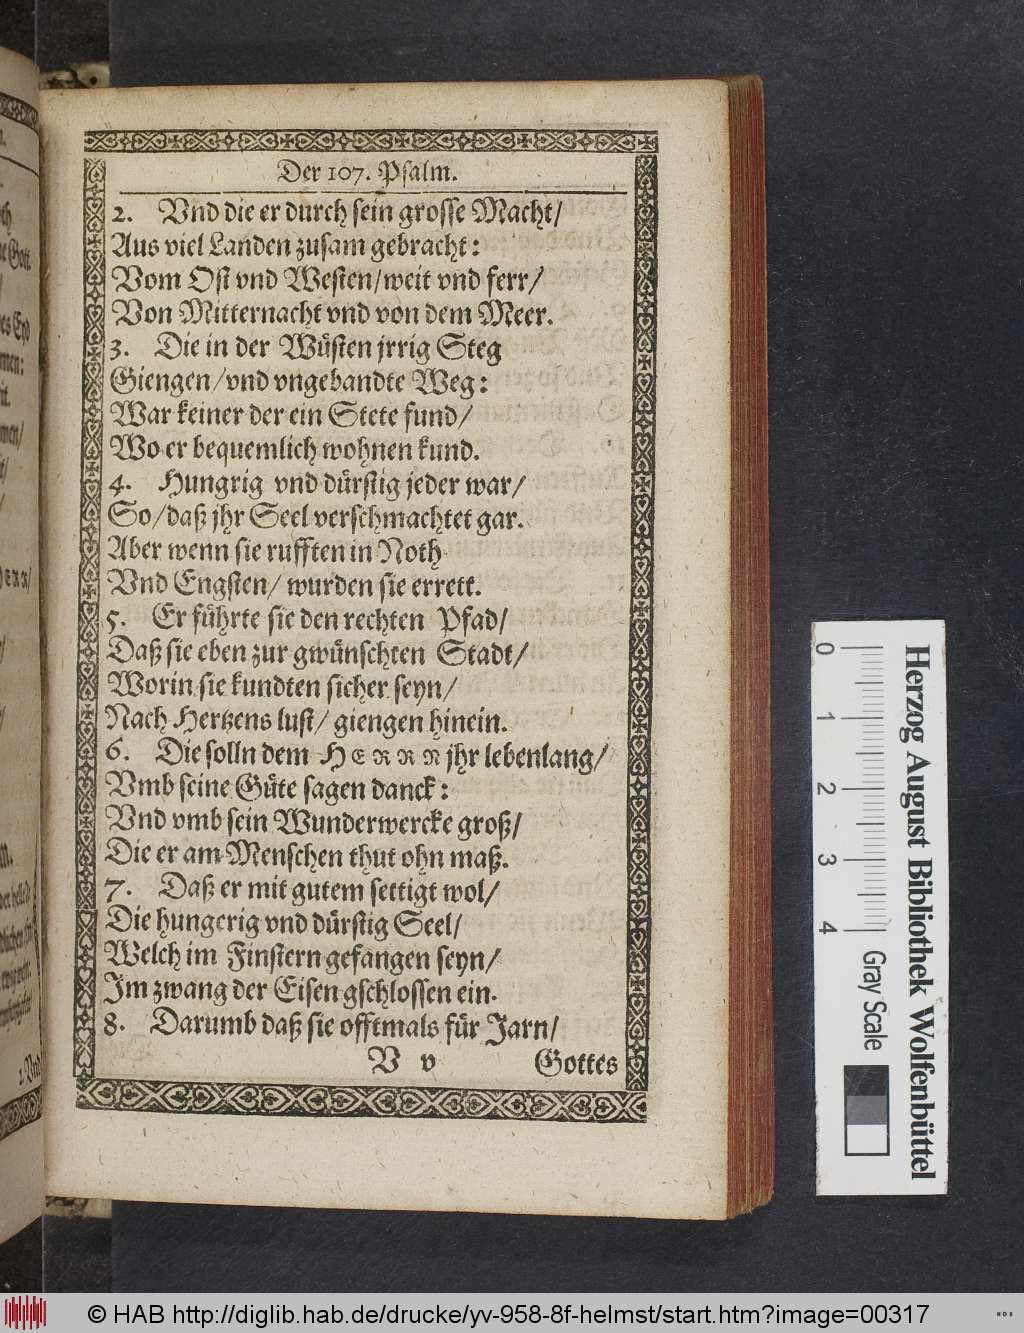 Der 107. Psalm.
2. Vnd die er durch sein grosse Macht/
Aus viel Landen zusam gebracht:
Vom Ost vnd Westen/weit vnd ferr/
Von Mitternacht vnd von dem Meer.
3. Die in der Wüsten jrrig Steg
Giengen/vnd vngebandte Weg:
War keiner der ein Stete fund/
Wo er bequemlich wohnen kund.
4. Hungrig vnd dürstig jeder war/
So/daß jhr Seel verschmachtet gar.
Aber wenn sie rufften in Noth
Vnd Engsten/ wurden sie errett.
5. Er führte sie den rechten Pfad/
Daß sie eben zur gwünschten Stadt/
Worin sie kundten sicher seyn/
Nach Hertzens lust/ giengen hinein.
6. Die solln dem HERRN jhr lebenlang/
Vmb seine Güte sagen danck:
Vnd vmb sein Wunderwercke groß/
Die er am Menschen thut ohn maß.
7. Daß er mit gutem settigt wol/
Die hungerig vnd dürstig Seel/
Welch im Finstern gefangen seyn/
Im zwang der Eisen gschlossen ein.
8. Darumb daß sie offtmals für Jarn/
V v Gottes
0 1 2 3 4
Gray Scale
Herzog August Bibliothek Wolfenbüttel
© HAB http://diglib.hab.de/drucke/yv-958-8f-helmst/start.htm?image=00317